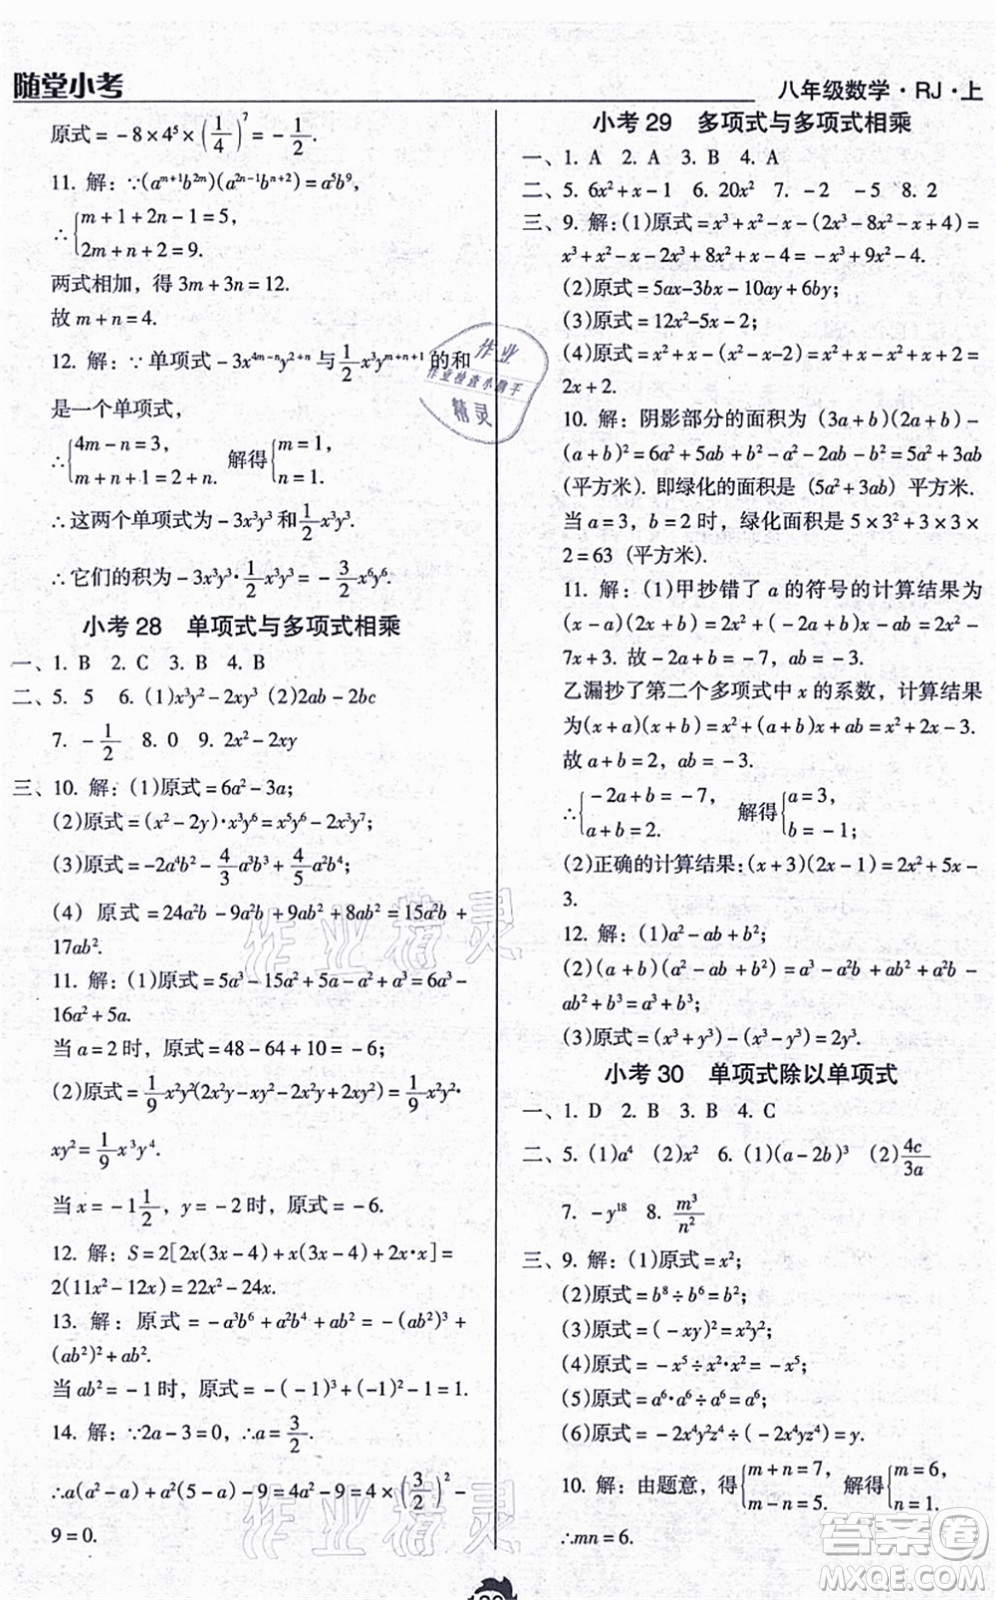 随堂小考
八年级数学·RJ·上
原式=-8×4⁵×(1/4)⁷=-1/2.
11. 解:∵(aᵐ⁺¹b²ᵐ)(a²ⁿ⁻¹bⁿ⁺²)=a⁵b⁹,
∴{m+1+2n-1=5,
2m+n+2=9.
两式相加，得 3m+3n=12.
故 m+n=4.
12. 解:∵单项式-3x⁴ᵐ⁻ⁿy²⁺ⁿ与1/2x³yᵐ⁺ⁿ⁺¹的和
是一个单项式,
∴{4m-n=3,
m+n+1=2+n.
解得{m=1,
n=1.
∴这两个单项式为-3x³y³和1/2x³y³.
∴它们的积为-3x³y³·1/2x³y³=-3/2x⁶y⁶.
小考28 单项式与多项式相乘
一、1. B 2. C 3. B 4. B
二、5. 5 6. (1)x³y²-2xy³ (2)2ab-2bc
7. -1/2 8. 0 9. 2x²-2xy
三、10. 解:(1)原式=6a²-3a;
(2)原式=(x²-2y)·x³y⁶=x⁵y⁶-2x³y⁷;
(3)原式=-2a⁴b²-4/3a³b³+4/5a²b⁴;
(4)原式=24a²b-9a²b+9ab²+8ab²=15a²b+
17ab².
11. 解:(1)原式=5a³-15a²+5a-a²+a³=6a³-
16a²+5a.
当a=2时，原式=48-64+10=-6;
(2)原式=1/9x²y(2x²y-xy²-2x²y+2xy²)=1/9x²y·
xy²=1/9x³y⁴.
当 x=-1 1/2, y=-2时，原式=-6.
12. 解: S=2[2x(3x-4)+x(3x-4)+2x·x]=
2(11x²-12x)=22x²-24x.
13. 解: 原式=-a³b⁶+a²b⁴+ab²=-(ab²)³+
(ab²)²+ab².
当ab²=-1时，原式=-(-1)³+(-1)²-1=1.
14. 解:∵2a-3=0,∴a=3/2.
∴a(a²-a)+a²(5-a)-9=4a²-9=4×(3/2)²-
9=0.
小考29 多项式与多项式相乘
一、1. A 2. A 3. B 4. A
二、5. 6x²+x-1 6. 20x² 7. -2 -5 8. 2
三、9. 解:(1)原式=x³+x²-x-(2x³-8x²-x+4)=
x³+x²-x-2x³+8x²+x-4=-x³+9x²-4.
(2)原式=5ax-3bx-10ay+6by;
(3)原式=12x²-5x-2;
(4)原式=x²+x-(x²-2x+x-2)=x²+x-x²+
2x-x+2=
2x+2.
10. 解: 阴影部分的面积为 (3a+b)(2a+b)-
(a+b)²=6a²+5ab+b²-a²-2ab-b²=5a²+3ab
(平方米). 即绿化的面积是 (5a²+3ab) 平方米.
当 a=3, b=2 时，绿化面积是 5×3²+3×3×
2=63 (平方米).
11. 解: (1)甲抄错了 a 的符号的计算结果为
(x-a)(2x+b)=2x²+(-2a+b)x-ab=2x²-
7x+3. 故-2a+b=-7, -ab=3.
乙漏抄了第二个多项式中 x 的系数，计算结果
为(x+a)(x+b)=x²+(a+b)x+ab=x²+2x-3.
故 a+b=2, ab=-3.
∴{-2a+b=-7,
a+b=2.
解得{a=3,
b=-1.
(2)正确的计算结果:(x+3)(2x-1)=2x²+5x-
3.
12. 解:(1)a²-ab+b²;
(2)(a+b)(a²-ab+b²)=a³-a²b+ab²+a²b-
ab²+b³=a³+b³;
(3)原式=(x³+y³)-(x³-y³)=2y³.
小考30 单项式除以单项式
一、1. D 2. B 3. B 4. C
二、5. (1)a⁴ (2)x² 6. (1)(a-2b)³ (2)4c/3a
7. -y¹⁸ 8. m³/n²
三、9. 解:(1)原式=x²;
(2)原式=b⁸÷b⁶=b²;
(3)原式=(-xy)²=x²y²;
(4)原式=-x⁵÷x²=-x³;
(5)原式=a⁶·a⁶÷a⁶=a⁶;
(6)原式=-2x⁴y²z⁴÷(-2x⁴yz⁴)=y.
10. 解: 由题意，得{m+n=7,
m-n=5.
解得{m=6,
n=1.
∴mn=6.
作业
作业检查小助手
精灵
作业精灵
作业精灵
答案圈
MXQE.COM